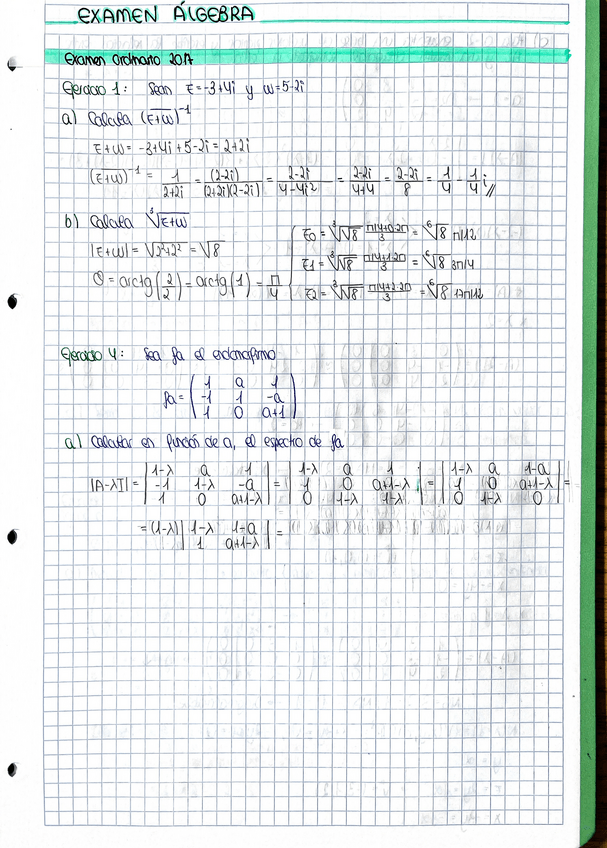 EXAMEN ÁLGEBRA
Examen Ordinario 2017
Ejercicio 1: Sean z=-3+4i y w=5-2i
a) Calcula (z+w)^-1
z+w = -3+4i+5-2i = 2+2i
(z+w)^-1 = 1/(2+2i) = (2-2i)/((2+2i)(2-2i)) = (2-2i)/(4-4i²) = (2-2i)/(4+4) = (2-2i)/8 = 1/4 - 1/4 i //
b) Calcula ³√(z+w)
|z+w| = √(2²+2²) = √8
θ = arctg(2/2) = arctg(1) = π/4
z0 = ³√√8 (π/4+0·2π)/3 = ⁶√8 π/12
z1 = ³√√8 (π/4+1·2π)/3 = ⁶√8 3π/4
z2 = ³√√8 (π/4+2·2π)/3 = ⁶√8 17π/12
Ejercicio 4: Sea fa el endomorfismo
fa = ( 1 a 1
-1 1 -a
1 0 a+1 )
a) Calcular en función de a, el espectro de fa
|A-λI| = | 1-λ a 1 | = | 1-λ a 1 | = | 1-λ a 1-a | =
| -1 1-λ -a | | 1 0 a+1-λ | | 1 0 a+1-λ |
| 1 0 a+1-λ | | 0 1-λ 1-λ | | 0 1-λ 0 |
= (1-λ) | 1-λ 1-a | =
| 1 a+1-λ |